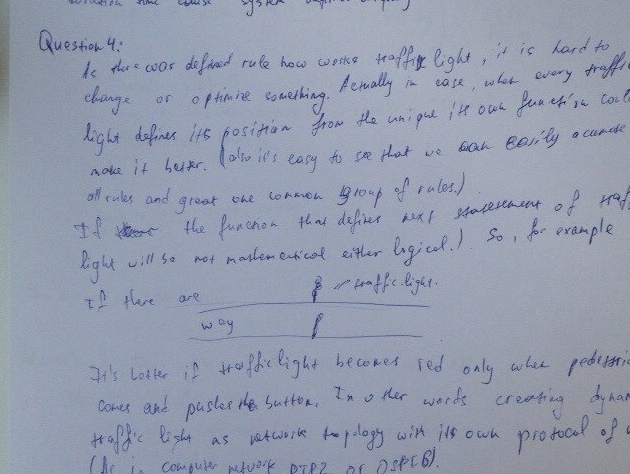 system
Question 4:
As there was defined rule how works traffic light, it is hard to
change or optimize something. Actually in case, when every traffi
light defines its position from the unique its own function coul
make it better. (also it's easy to see that we can easily
all rules and great one common group of rules.)
If the function that defines next of traf
light will be not mathematical either logical.) So, for example
If there are traffic light.
way
It's better if trafficlight becomes red only when pedestri
comes and pushes the button. In other words creating dynam
traffic light as network topology with its own protocol of
(As in computer network or OSPF6).